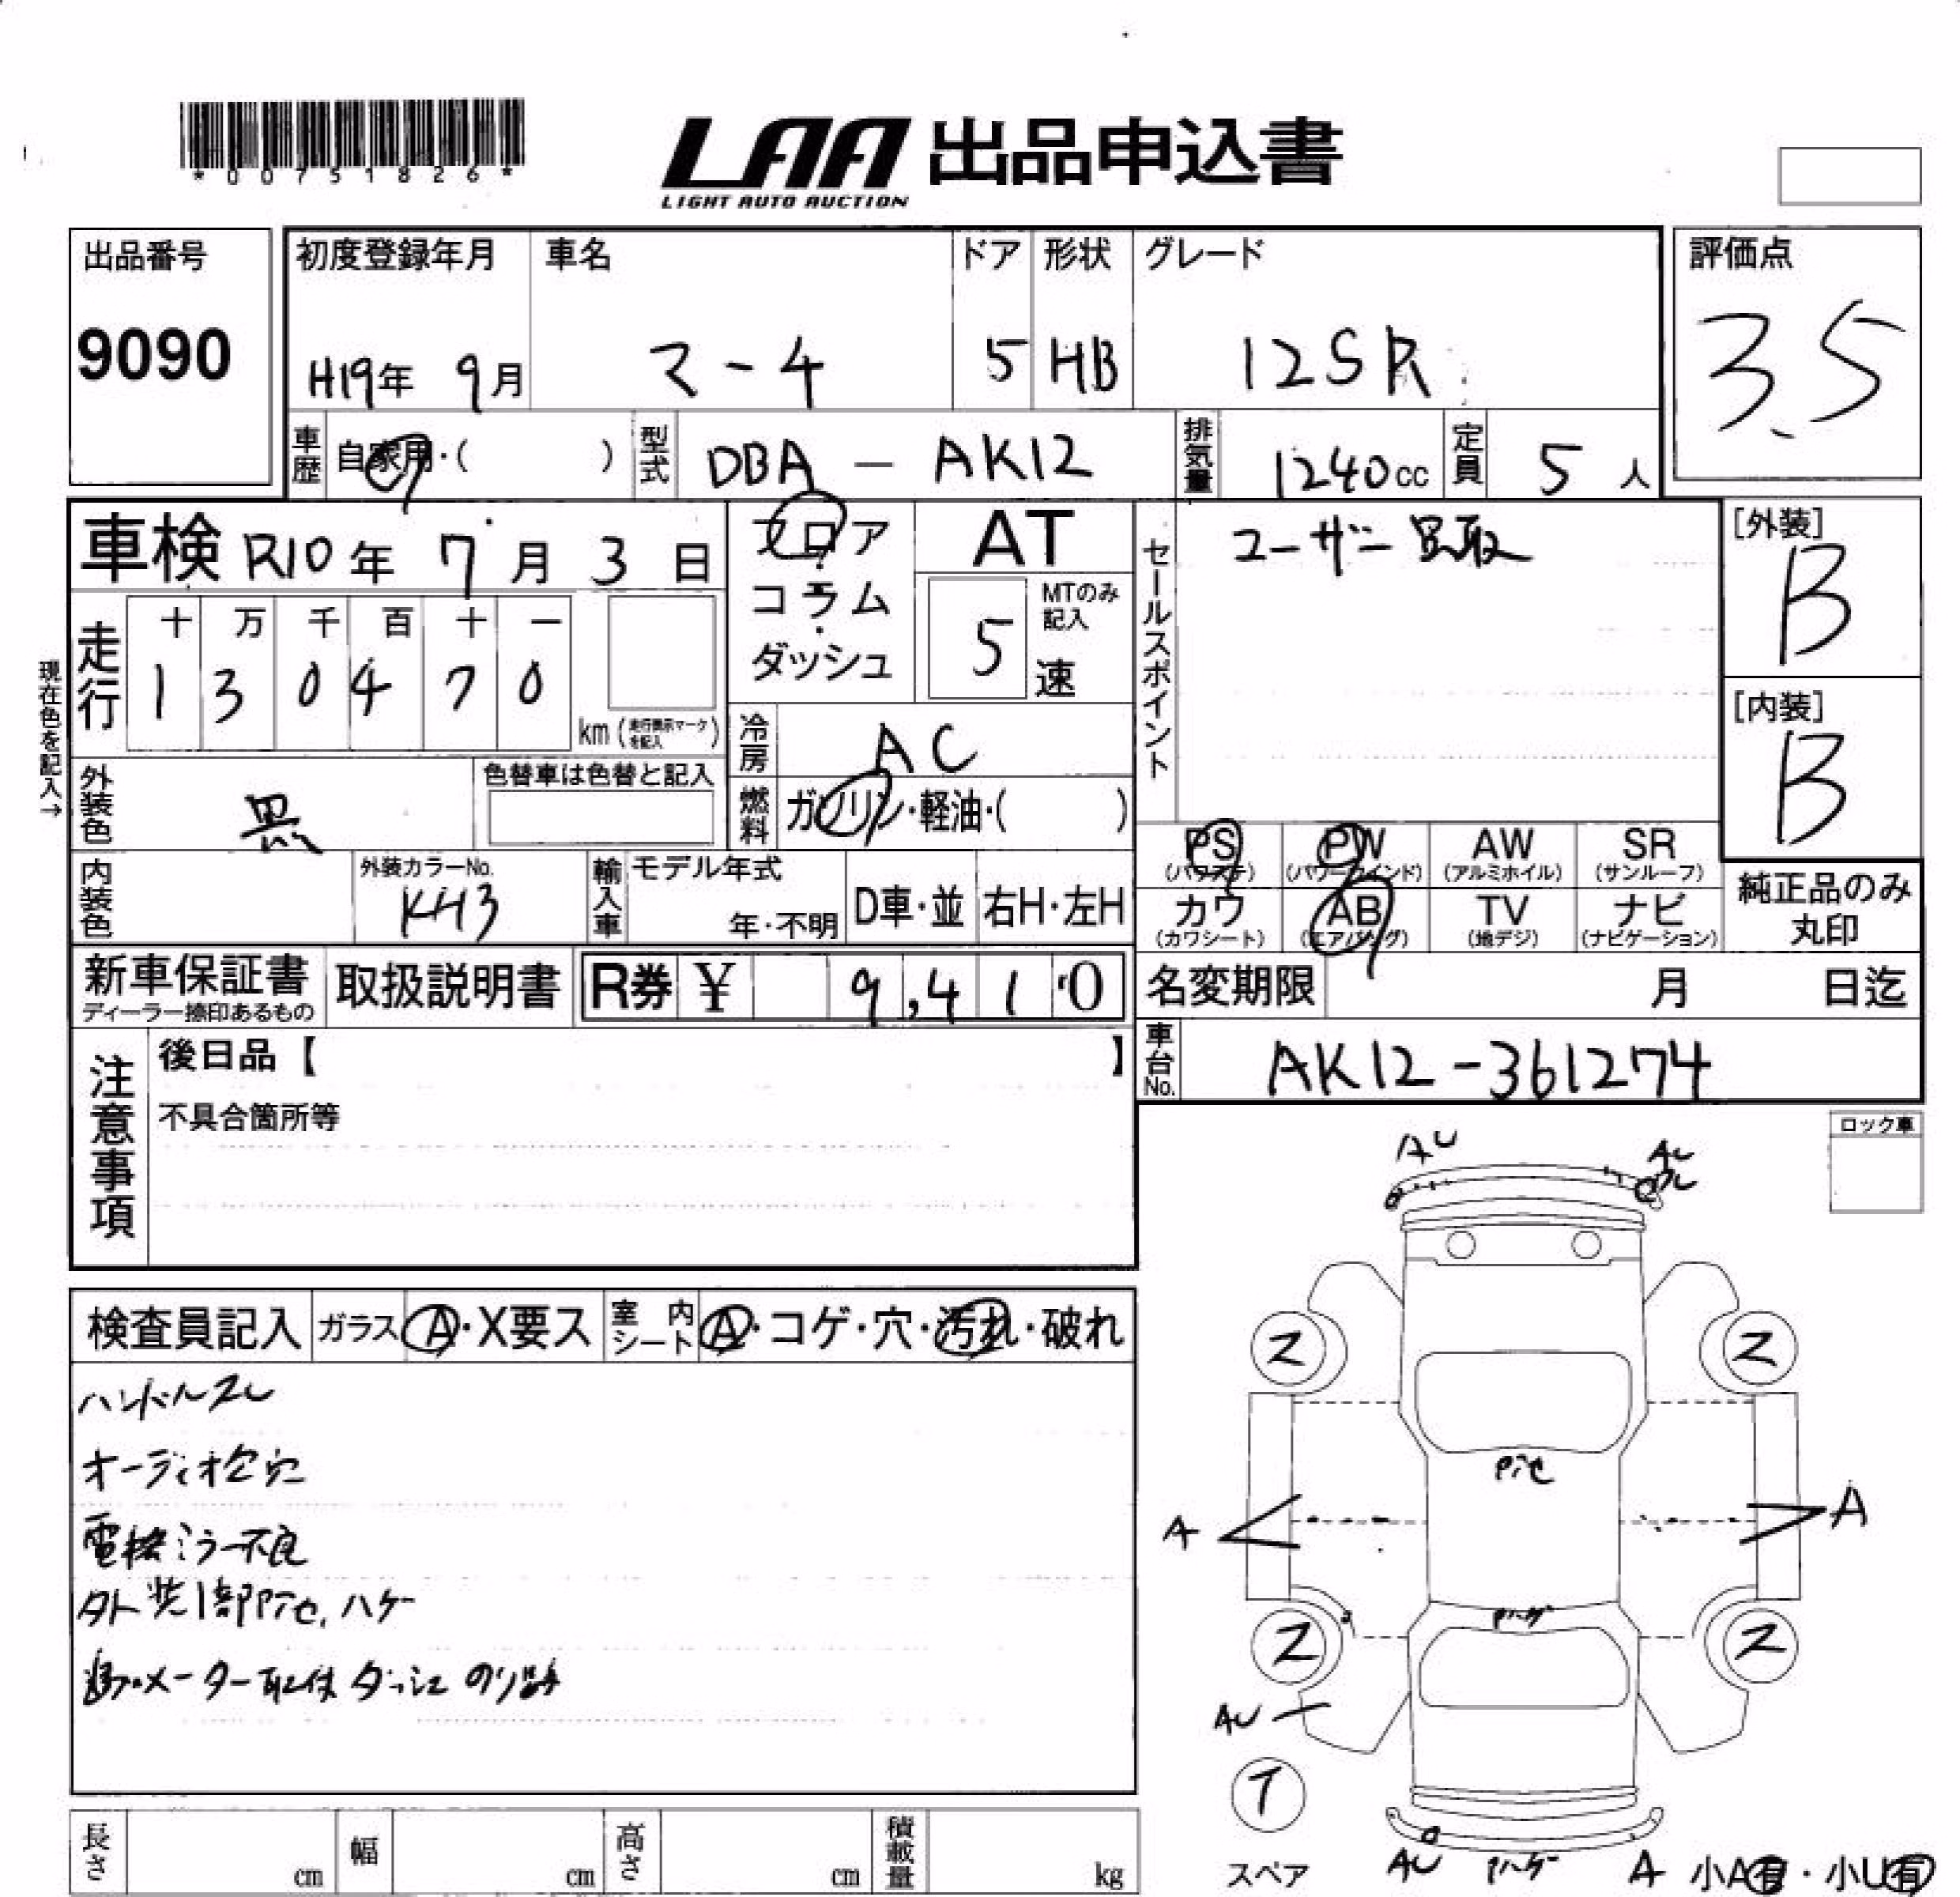 *00751826*
LAA 出品申込書
LIGHT AUTO AUCTION
出品番号
9090
初度登録年月
H19年 9月
車名
マーチ
ドア
5
形状
HB
グレード
12SR
評価点
3.5
車歴 自家用・( )
型式 DBA - AK12
排気量 1240cc
定員 5人
車検 R10年 7月 3日
走行
十 万 千 百 十 一
1 3 0 4 7 0
km (走行表示マークを記入)
現在色を記入→
フロア
コラム
ダッシュ
AT
MTのみ記入
5速
冷房 AC
燃料 ガソリン・軽油・( )
外装色 黒
色替車は色替と記入
内装色
外装カラーNo.
KH3
輸入車
モデル年式
年・不明
D車・並
右H・左H
新車保証書
ディーラー捺印あるもの
取扱説明書
R券 ¥ 9,410
セールスポイント
ユーザー買取
[外装]
B
[内装]
B
PS
(パワステ)
PW
(パワーウインド)
AW
(アルミホイル)
SR
(サンルーフ)
カワ
(カワシート)
AB
(エアバッグ)
TV
(地デジ)
ナビ
(ナビゲーション)
純正品のみ
丸印
名変期限 月 日迄
車台No. AK12-361274
注意事項
後日品【 】
不具合箇所等
検査員記入
ガラス A・X要ス
室内シート A・コゲ・穴・汚れ・破れ
ハンドルスレ
オーディオ欠穴
電格ミラー不良
外装1部P色,ハゲ
メーター取付 ダッシュ のり跡
ロック車
AU
AU
2
2
P色
A
A
Pハゲ
2
2
AU
T
スペア
AU
Pハゲ
A
小A有・小U有
長さ cm
幅 cm
高さ cm
積載量 kg